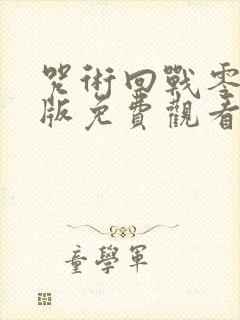 咒術回戰零
版免費觀看
童學軍